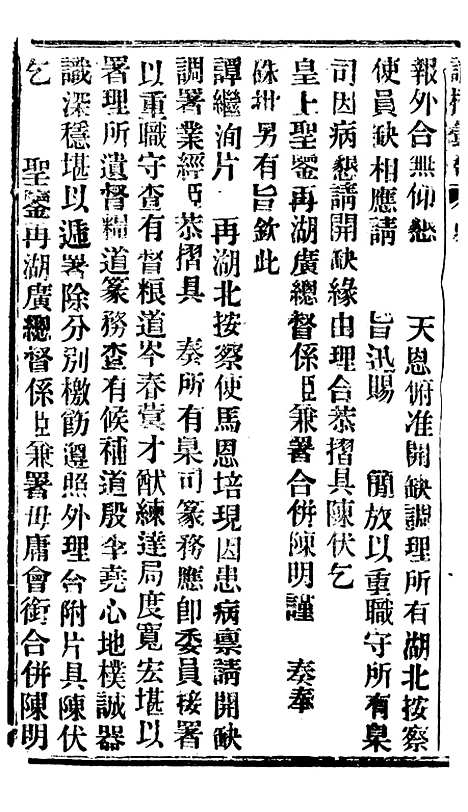 報外合無仰懇　天恩俯准開缺調理所有湖北按察
使員缺相應請　旨迅賜　簡放以重職守所有臬
司因病懇請開缺緣由理合恭摺具陳伏乞
皇上聖鑒再湖廣總督係臣兼署合併陳明謹　奏奉
硃批另有旨欽此
譚繼洵片　再湖北按察使馬恩培現因患病稟請開缺
調署業經臣恭摺具　奏所有臬司篆務應卽委員接署
以重職守查有督粮道岑春蓂才猷練達局度寬宏堪以
署理所遺督糧道篆務查有候補道殷李堯心地樸誠器
識深穩堪以遞署除分別檄飭遵照外理合附片具陳伏
乞　聖鑒再湖廣總督係臣兼署毋庸會銜合併陳明